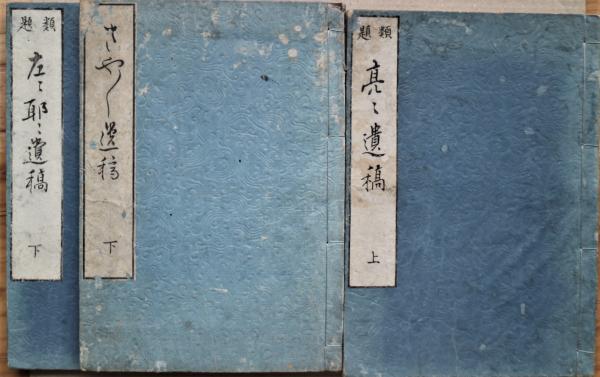 類題
亮ゝ遺稿
上
さや〱遺稿
下
類題
左ゝ耶ゝ遺稿
下